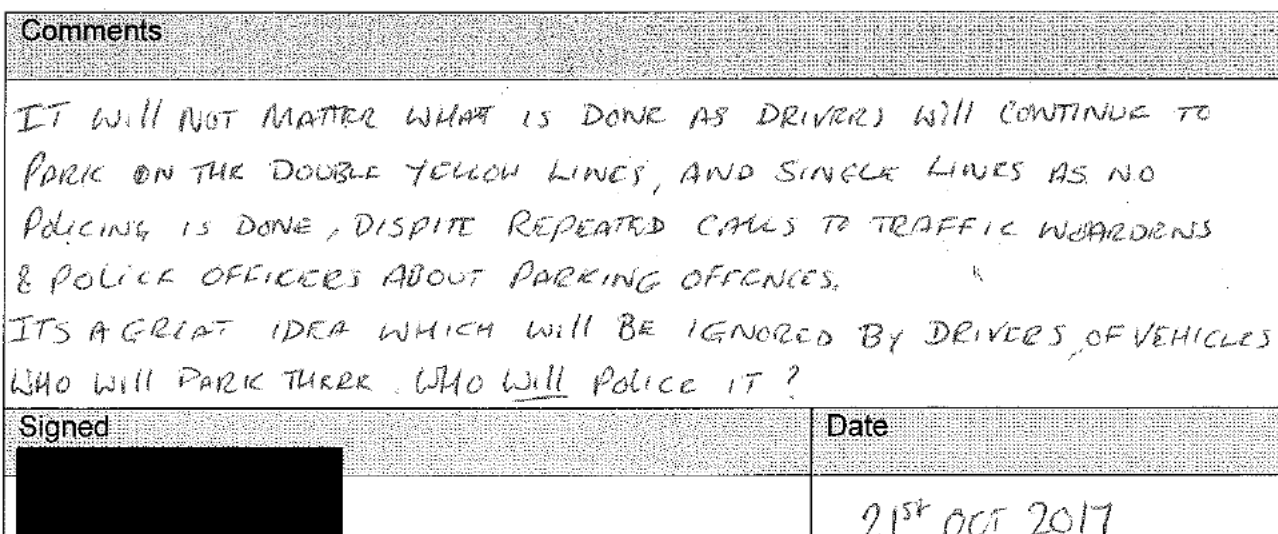 Comments
IT Will NOT MATTER WHAT IS DONE AS DRIVERS Will CONTINUE TO
PARK ON THE DOUBLE YELLOW LINES, AND SINGLE LINES AS NO
POLICING IS DONE, DISPITE REPEATED CALLS TO TRAFFIC WARDENS
& POLICE OFFICERS ABOUT PARKING OFFENCES.
ITS A GREAT IDEA WHICH Will BE IGNORED BY DRIVERS, OF VEHICLES
WHO Will PARK THERE. WHO Will POLICE IT?
Signed Date
21st OCT 2017